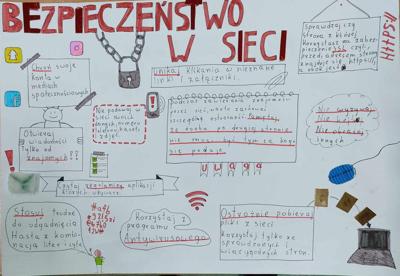 BEZPIECZEŃSTWO
W SIECI
Chroń swoje
konta w
mediach
społecznościowych
unikaj klikania w nieznane
linki i załączniki.
sprawdzaj czy
strona z której
korzystasz ma zabez-
pieczenie SSL czyli
przed adresem strony
znajduje się https://
a obok jest
HTTPS:/
Nie podawaj w
sieci swoich
danych, numeru
telefonu, haseł,
zdjęć.
Podczas zawierania znajomości
przez sieć, warto zachować
szczególną ostrożność. Pamiętaj,
że osoba po drugiej stronie
nie musi być tym za kogo
się podaje.
Nie wyzywaj
Nie
Nie obrażaj
innych
Otwieraj
wiadomości
Tylko od
znajomych!!
uwaga
Czytaj regulaminy aplikacji
których używasz.
Stosuj trudne
do odgadnięcia
Hasła z kombi-
nacją liter i cyfr
Korzystaj z
programu
Antywirusowego
Ostrożnie pobieraj
pliki z sieci
Korzystaj tylko ze
sprawdzonych i
wiarygodnych stron.